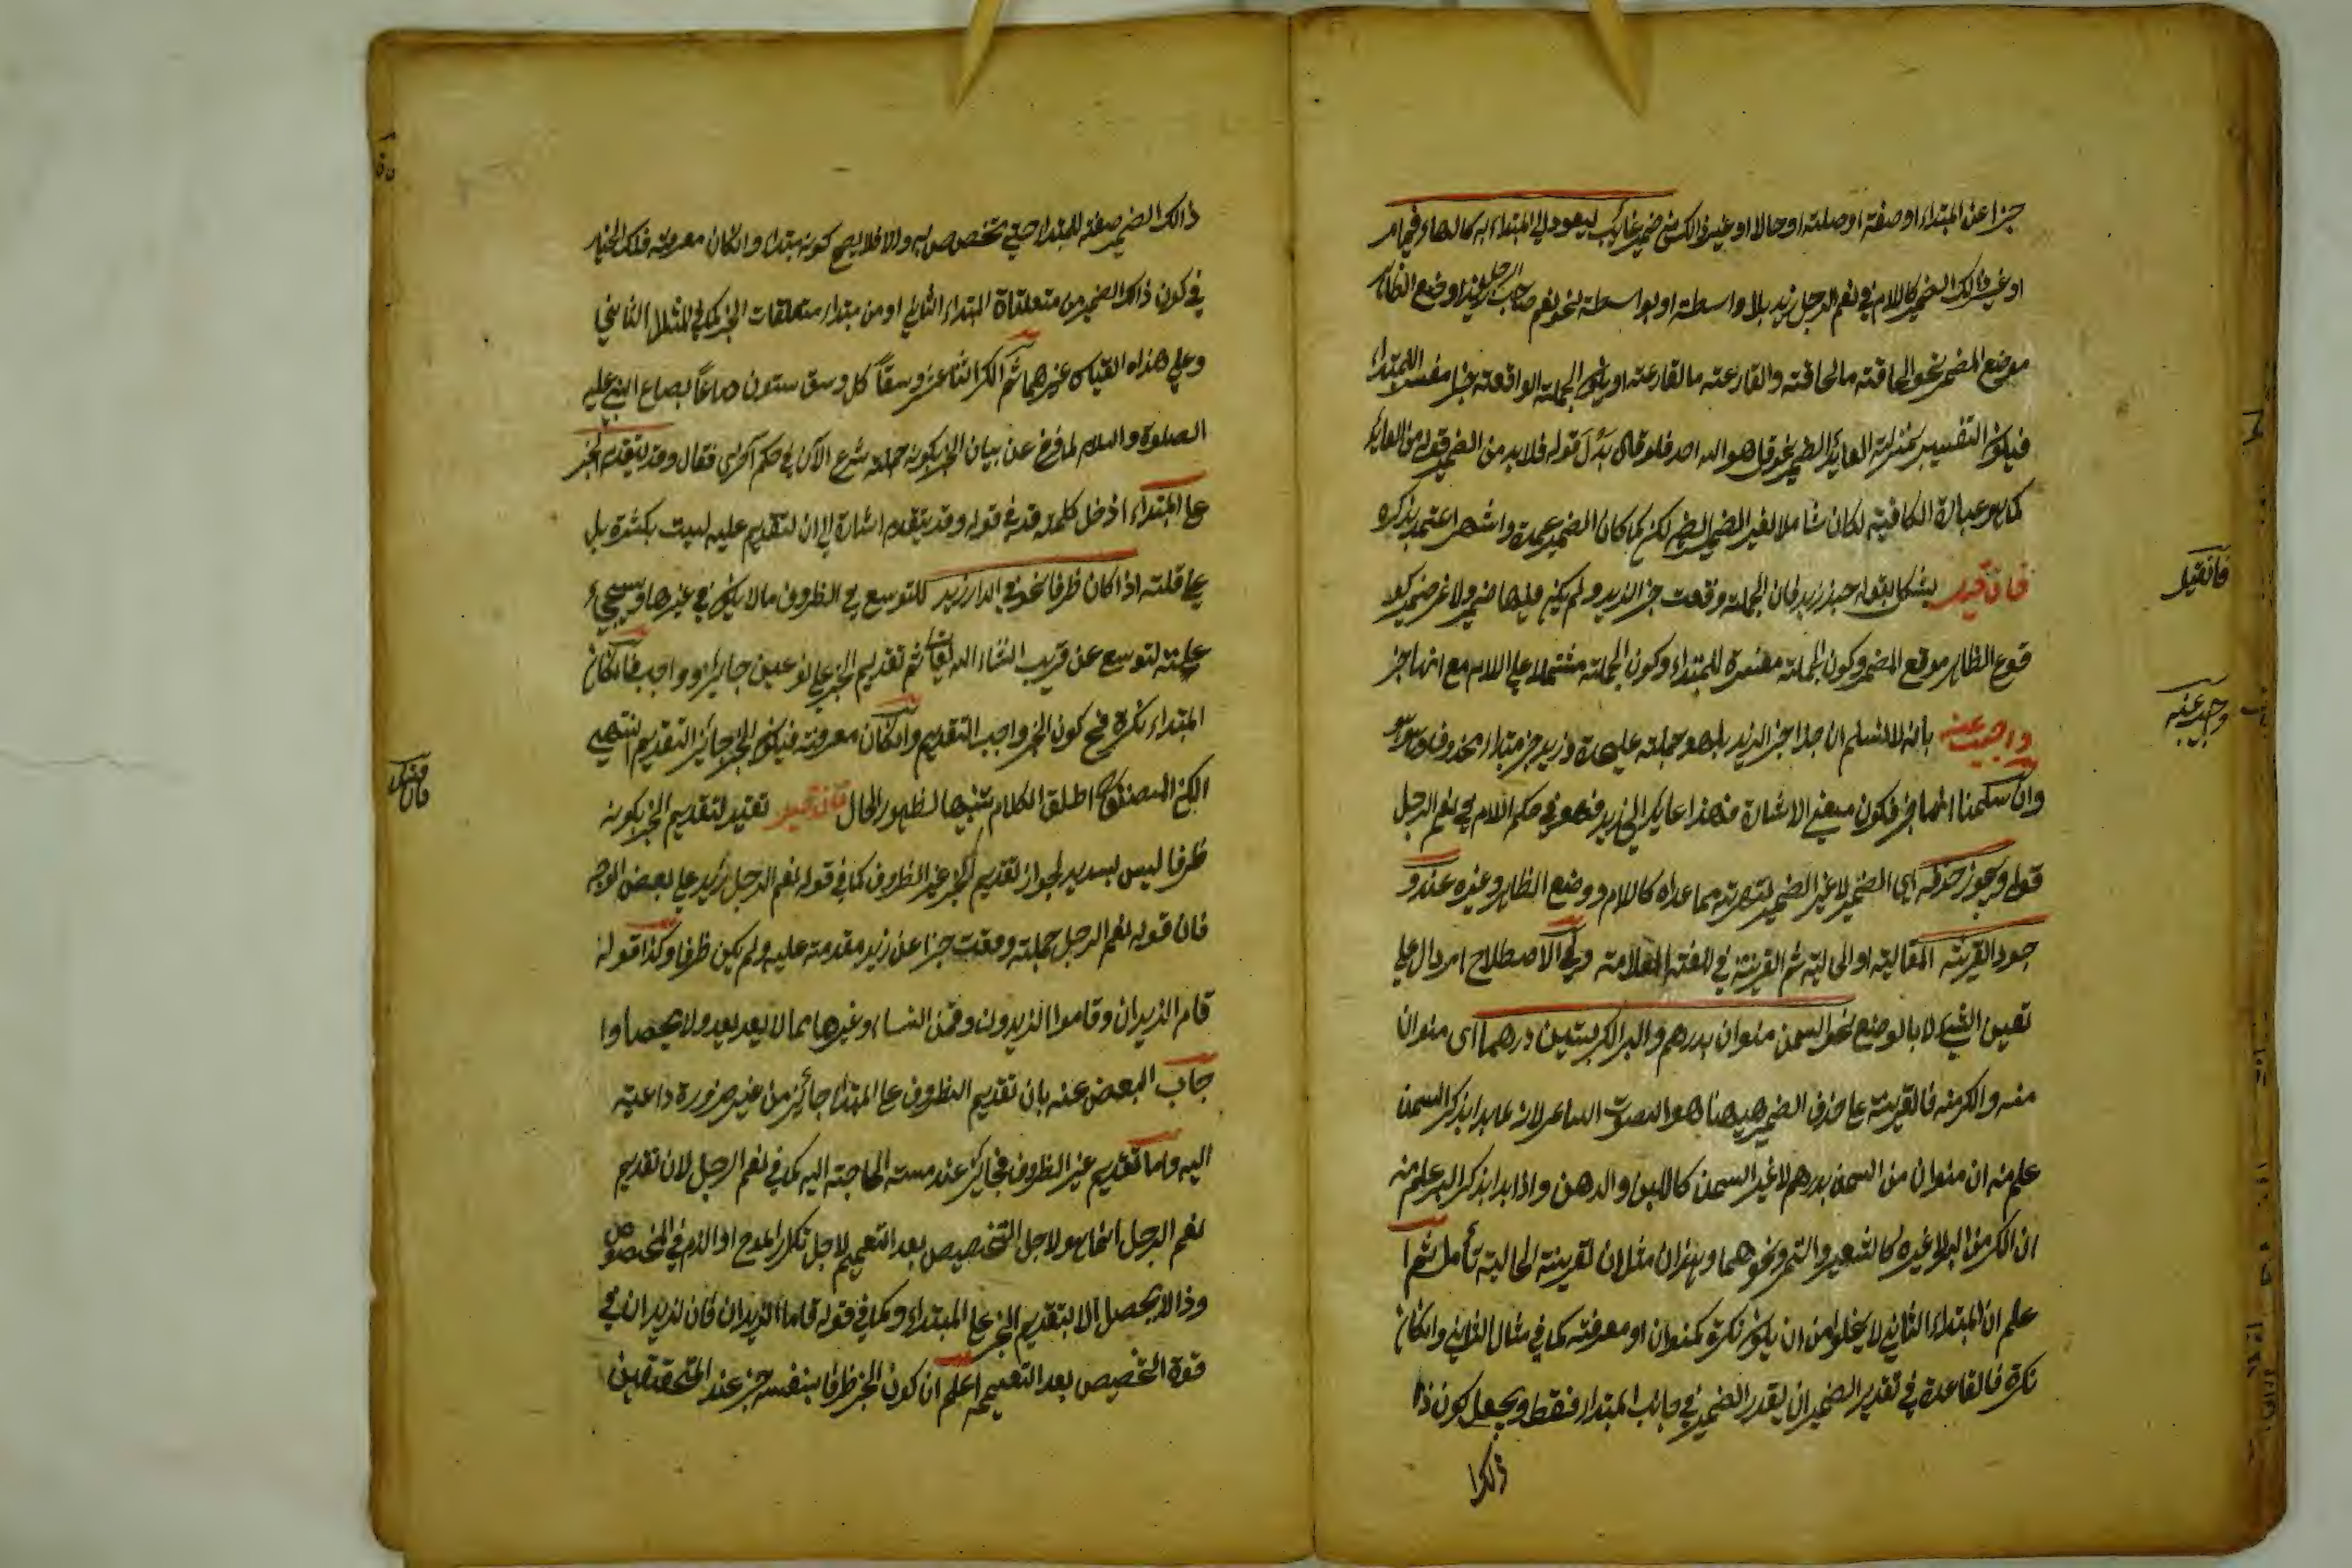 جزا عن المبتداء او صفته او صلته او حالا او غير ذالك من ضمير غائب ليعود الي المبتداء به كالهاء فيما مر
او غير ذالك الضمير كاللام في نعم الرجل زيد بلا واسطة او بواسطة نحو نعم صاحب الرجل زيد او وضع الظاهر
موضع المضمر نحو الحاقته ما الحاقته والقارعته ما القارعته او يكون الجملته الواقعته خبرا مفسر المبتداء
فيكون التفسير بمنزلته العايد الضمير نحو قل هو الله احد فلو قال بدل قوله فلا بد من الضمير قوله من العايد
كما هو عبارة الكافيته لكان شاملا لغير الضمير لكن لما كان الضمير عمدة واشهر اعتمد بذكره
فان قيل يشكل بقوله حبذ زيد فان الجملته وقعت خبر الزيد ولم يكن فيها ضمير ولا غير ضمير كو
قوع الظاهر موقع المضمر وكون الجملته مفسرة للمبتداء وكون الجملته مشتملا علي اللام مع انها خبر
واجيب عنه بانه لا نسلم ان حبذا خبر الزيد بل هو جملته عليحدة وزيد خبر مبتداء محذوف وهو هو
وان سلمنا انها خبر فكون معني الاشارة في هذا عايد الي زيد فهو في حكم اللام في نعم الرجل
قوله ويجوز حذفه اي الضمير لا غير الضمير لشهرته مما عداه كاللام ووضع الظاهر وغيره عند و
جود القرينته المقاليته او الحاليته ثم القرينته في اللغته العلامته وفي الاصطلاح امر دال علي
تعين الشيء لا بالوضع نحو السمن منوان بدرهم والبر الكر بستين درهما اي منوان
منه والكر منه فالقرينته علي حذف الضمير هيهنا هو الصوت السامر لانه عابدا بذكر السمن
علم منه ان منوان من السمن بدرهم لا غير السمن كاللبن والدهن واذا بدا بذكر البر علم منه
ان الكر من البر لا غيره كالشعير والتمر ونحوهما وهذان مثلان لقرينته الحاليته تأمل ثم ا
علم ان المبتداء الثاني لا يخلو من ان يكون نكرة كمنوان او معرفته كما في مثال الثاني وان كان
نكرة فالقاعدة في تقدير الضمير ان يقدر الضمير في جانب المبتداء فقط ويجعل كون ذا
ذلك ا
فان قيل
واجيب عنه
ذالك الضمير صفته للمبتداء حتي يتخصص به والا فلا يصح كونه مبتداء وان كان معرفته فلك الخيار
في كون ذالك الضمير من متعلقاة المبتداء الثاني او من مبتداء متعلقات الخبر كما في المثال الثاني
وعلي هذاه القياس غيرهما ثم الكر اثنا عشر وسقاً كل وسق ستون صاعاً بصاع النبي عليه
الصلوة والسلام لما فرغ عن بيان الخبر بكونه جملته شرع الآن في حكم آخر فقال وقد يتقدم الخبر
علي المبتداء ادخل كلمة قد في قوله وقد يتقدم اشارة الي ان التقديم عليه ليست بكثرة بل
علي قلته اذا كان ظرفا نحو في الدار زيد للتوسع في الظروف ما لا يكون في غيرها وسيجيء
علته التوسع عن قريب انشاء الله تعالي ثم تقديم الخبر علي نوعين جايز او واجب فان كان
المبتداء نكرة فح كون الخبر واجب التقديم وان كان معرفته فيكون الخبر جائز التقديم انتهي
لكن المصنف اطلق الكلام تنبيها لظهور الحال فان قيل تقيد لتقديم الخبر بكونه
ظرفا ليس بسديد لجواز تقديم الخبر غير الظروف كما في قوله نعم الرجل زيد علي بعض الوجه
فان قوله نعم الرجل جملته وقعت جزا عن زيد مقدمته عليه ولم يكن ظرفا وكذا قوله
قام الذيدان وقاموا الذيدون وقمن النساء وغيرها مما لا يعد بعد ولا يحصا وا
جاب البعض عنه بان تقديم الظروف علي المبتداء جائز من غير ضرورة داعيته
اليه واما تقديم غير الظروف فجايز عند مسته الحاجته اليه كما في نعم الرجل لان تقديم
نعم الرجل انما هو لاجل التخصيص بعد التعميم لاجل تكرار المدح او الذم في المخصوص
وذا لا يحصل الا بتقديم الخبر علي المبتداء وكما في قوله قاما الزيدان فان لذيدان في
قوة التخصيص بعد التعميم اعلم ان كون الخبر ظرفا بنفسه خبر عند المتحققين
فان قيل